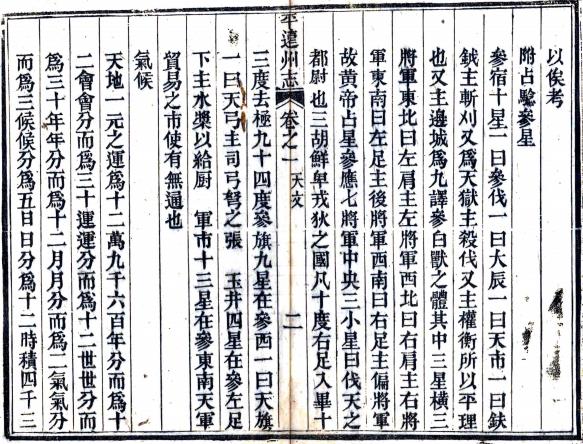 以俟考
附占驗參星
參宿十星一曰參伐一曰大辰一曰天市一曰鈇
鉞主斬刈又爲天獄主殺伐又主權衡所以平理
也又主邊城爲九譯參白獸之體其中三星橫三
將軍東北曰左肩主左將軍西北曰右肩主右將
軍東南曰左足主後將軍西南曰右足主偏將軍
故黄帝占星參應七將軍中央三小星曰伐天之
都尉也三胡鮮卑戎狄之國凡十度右足入畢十
達州志
卷之一 天文
二
三度去極九十四度參旗九星在參西一曰天旗
一曰天弓主司弓弩之張 玉井四星在參左足
下主水漿以給厨 軍市十三星在參東南天軍
貿易之市使有無通也
氣候
天地一元之運爲十二萬九千六百年分而爲十
二會會分而爲三十運運分而爲十二世世分而
爲三十年年分而爲十二月月分而爲二氣氣分
而爲三候候分爲五日日分爲十二時積四千三